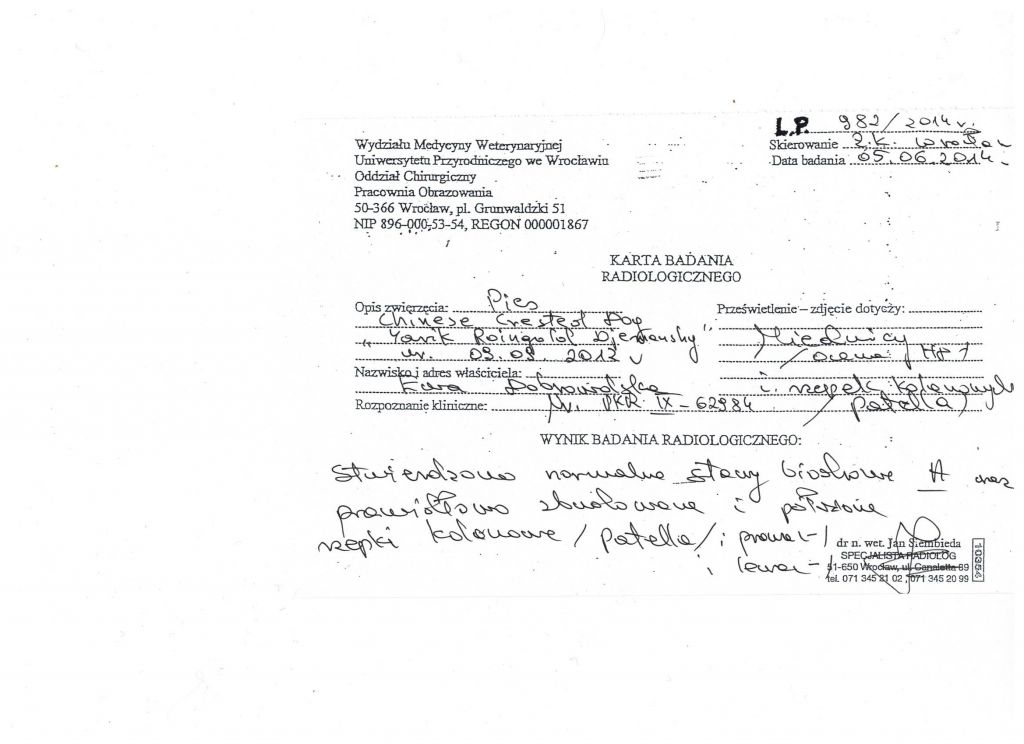 L.P. 982/2014 r.
Wydziału Medycyny Weterynaryjnej
Skierowanie Z.K. Wrocław
Uniwersytetu Przyrodniczego we Wrocławiu
Data badania 05.06.2014 r.
Oddział Chirurgiczny
Pracownia Obrazowania
50-366 Wrocław, pl. Grunwaldzki 51
NIP 896-000-53-54, REGON 000001867
KARTA BADANIA
RADIOLOGICZNEGO
Opis zwierzęcia: Pies
Prześwietlenie – zdjęcie dotyczy:
Chinese Crested Dog
„Yarik Roingold Djemansky"
Miednicy
ur. 09.09.2012 r
/ocena HD/
Nazwisko i adres właściciela:
Ewa Dobrowolska
i rzepek kolanowych
Rozpoznanie kliniczne: Nr. PKR IX-62984
/patella/
WYNIK BADANIA RADIOLOGICZNEGO:
Stwierdzono normalne stawy biodrowe A oraz
prawidłowo zbudowane i położone
rzepki kolanowe /patella/ i prawa -/
i lewa -/
dr n. wet. Jan Siembieda
SPECJALISTA RADIOLOG
51-650 Wrocław, ul. Canaletta 69
tel. 071 345 21 02, 071 345 20 99
10354